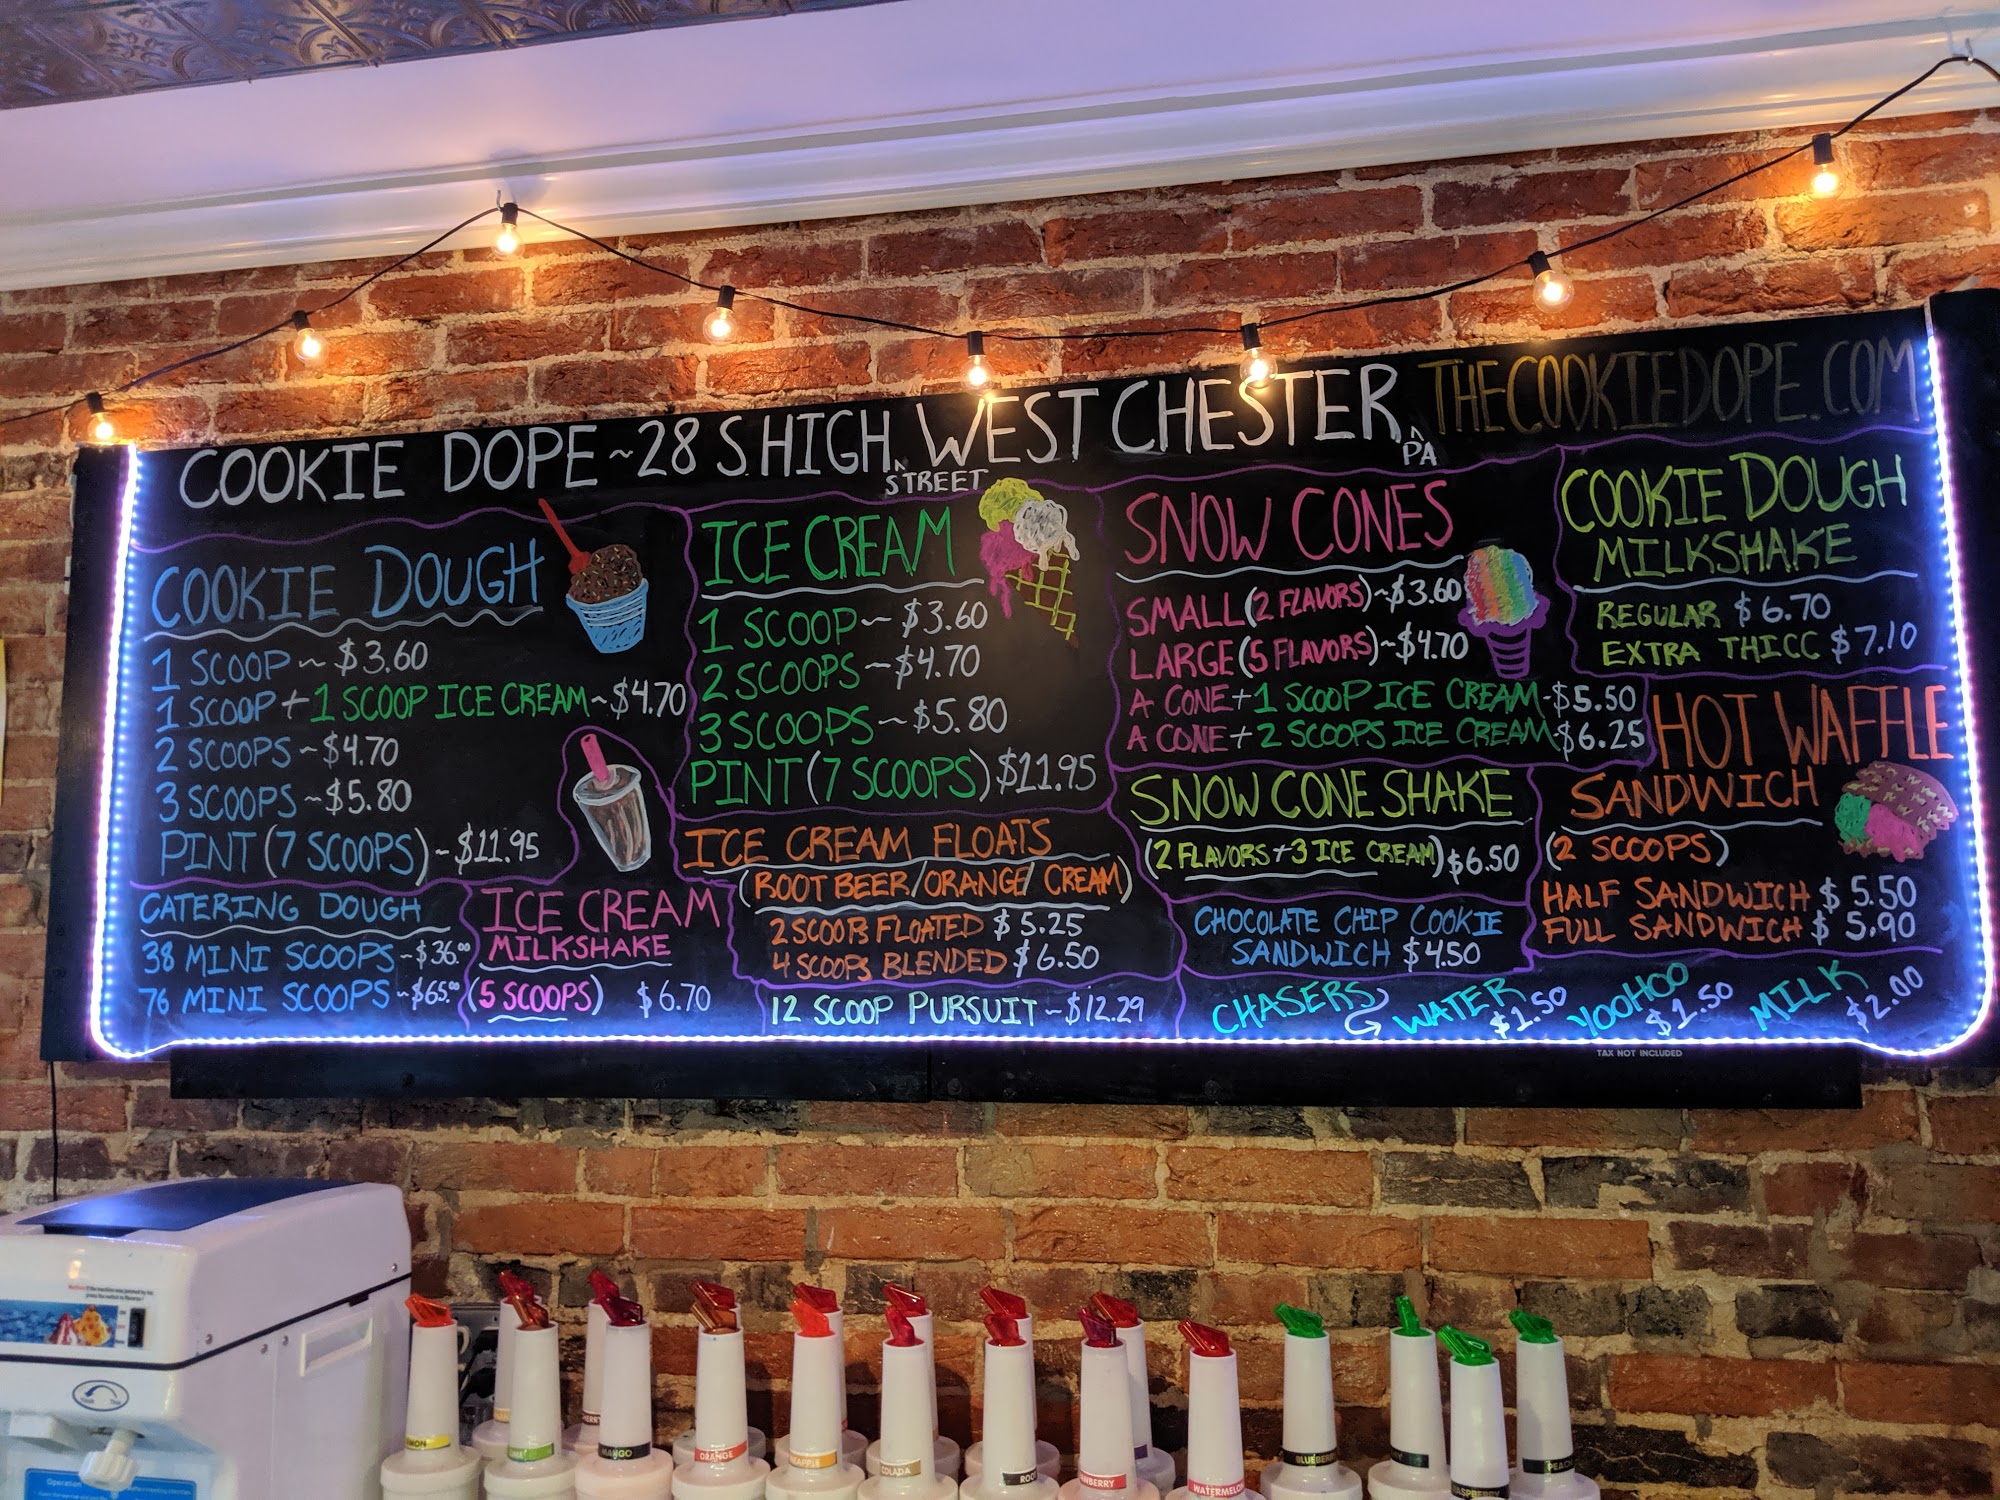 COOKIE DOPE ~ 28 S HIGH ^ WEST CHESTER ^ THECOOKIEDOPE.COM
STREET
PA
COOKIE DOUGH
1 SCOOP ~ $3.60
1 SCOOP + 1 SCOOP ICE CREAM ~ $4.70
2 SCOOPS ~ $4.70
3 SCOOPS ~ $5.80
PINT (7 SCOOPS) ~ $11.95
CATERING DOUGH
38 MINI SCOOPS ~ $36.00
76 MINI SCOOPS ~ $65.00
ICE CREAM
MILKSHAKE
(5 SCOOPS) $6.70
ICE CREAM
1 SCOOP ~ $3.60
2 SCOOPS ~ $4.70
3 SCOOPS ~ $5.80
PINT (7 SCOOPS) $11.95
ICE CREAM FLOATS
(ROOT BEER/ORANGE CREAM)
2 SCOOPS FLOATED $5.25
4 SCOOPS BLENDED $6.50
12 SCOOP PURSUIT ~ $12.29
SNOW CONES
SMALL (2 FLAVORS) ~ $3.60
LARGE (5 FLAVORS) ~ $4.70
A CONE + 1 SCOOP ICE CREAM - $5.50
A CONE + 2 SCOOPS ICE CREAM - $6.25
SNOW CONE SHAKE
(2 FLAVORS + 3 ICE CREAM) $6.50
CHOCOLATE CHIP COOKIE
SANDWICH $4.50
COOKIE DOUGH
MILKSHAKE
REGULAR $6.70
EXTRA THICC $7.10
HOT WAFFLE
SANDWICH
(2 SCOOPS)
HALF SANDWICH $5.50
FULL SANDWICH $5.90
CHASERS WATER $1.50 YOOHOO $1.50 MILK $2.00
TAX NOT INCLUDED
MANGO
ORANGE
COLADA
WATERMELON